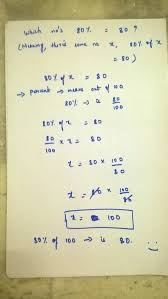 What no's 80% = 80 ?
(Meaning, there's some no x, 80% of x
= 80)
80% of x = 80
→ percent → means out of 100
80% → is 80/100
80/100 × x = 80
x = 80 × 100/80
x = 80 × 100/80
x = 100
80% of 100 → is 80.